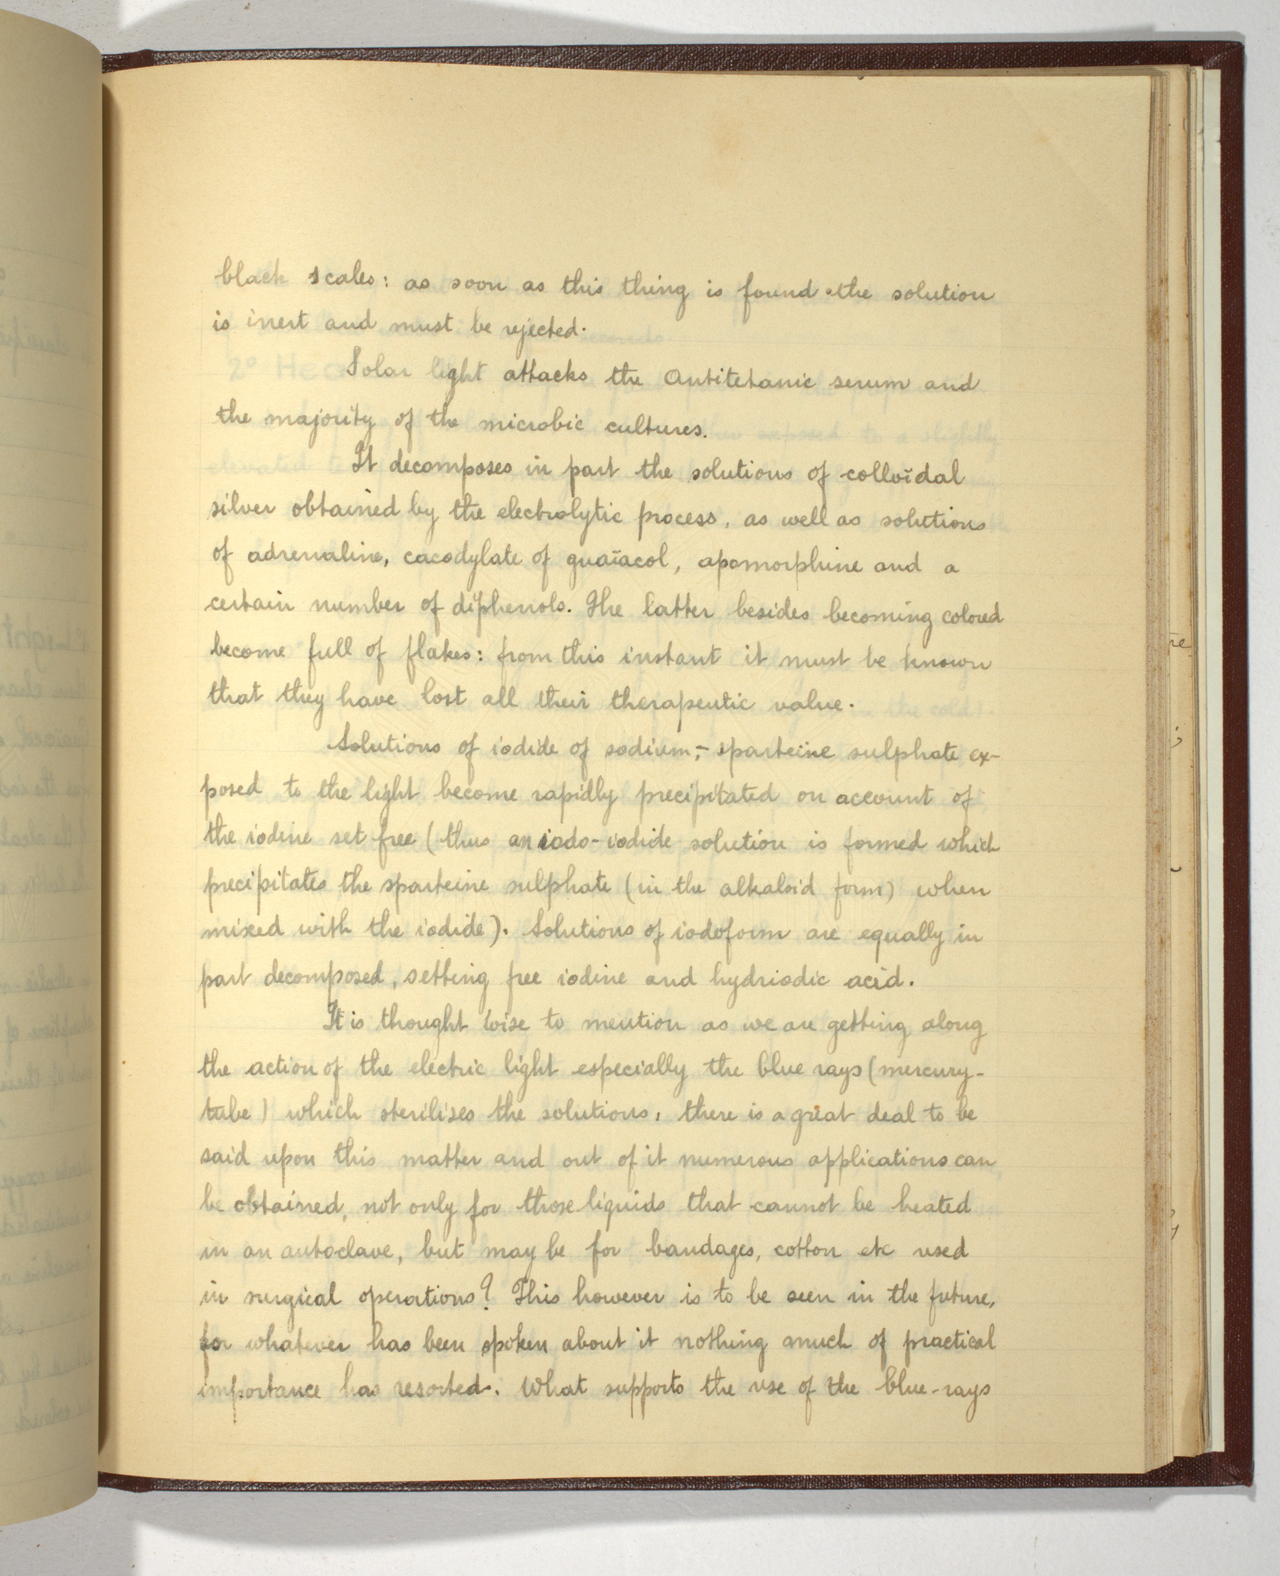 black scales: as soon as this thing is found the solution
is inert and must be rejected.
Solar light attacks the Antitetanic serum and
the majority of the microbic cultures.
It decomposes in part the solutions of colloïdal
silver obtained by the electrolytic process, as well as solutions
of adrenaline, cacodylate of guaïacol, apomorphine and a
certain number of diphenols. The latter besides becoming colored
become full of flakes: from this instant it must be known
that they have lost all their therapeutic value.
Solutions of iodide of sodium,- sparteine sulphate ex-
posed to the light become rapidly precipitated on account of
the iodine set free (thus an iodo-iodide solution is formed which
precipitates the sparteine sulphate (in the alkaloid form) when
mixed with the iodide). Solutions of iodoform are equally in
part decomposed, setting free iodine and hydriodic acid.
It is thought wise to mention as we are getting along
the action of the electric light especially the blue rays (mercury-
tube) which sterilises the solutions, there is a great deal to be
said upon this matter and out of it numerous applications can
be obtained, not only for those liquids that cannot be heated
in an autoclave, but may be for bandages, cotton etc used
in surgical operations? This however is to be seen in the future,
for whatever has been spoken about it nothing much of practical
importance has resorted. What supports the use of the blue-rays